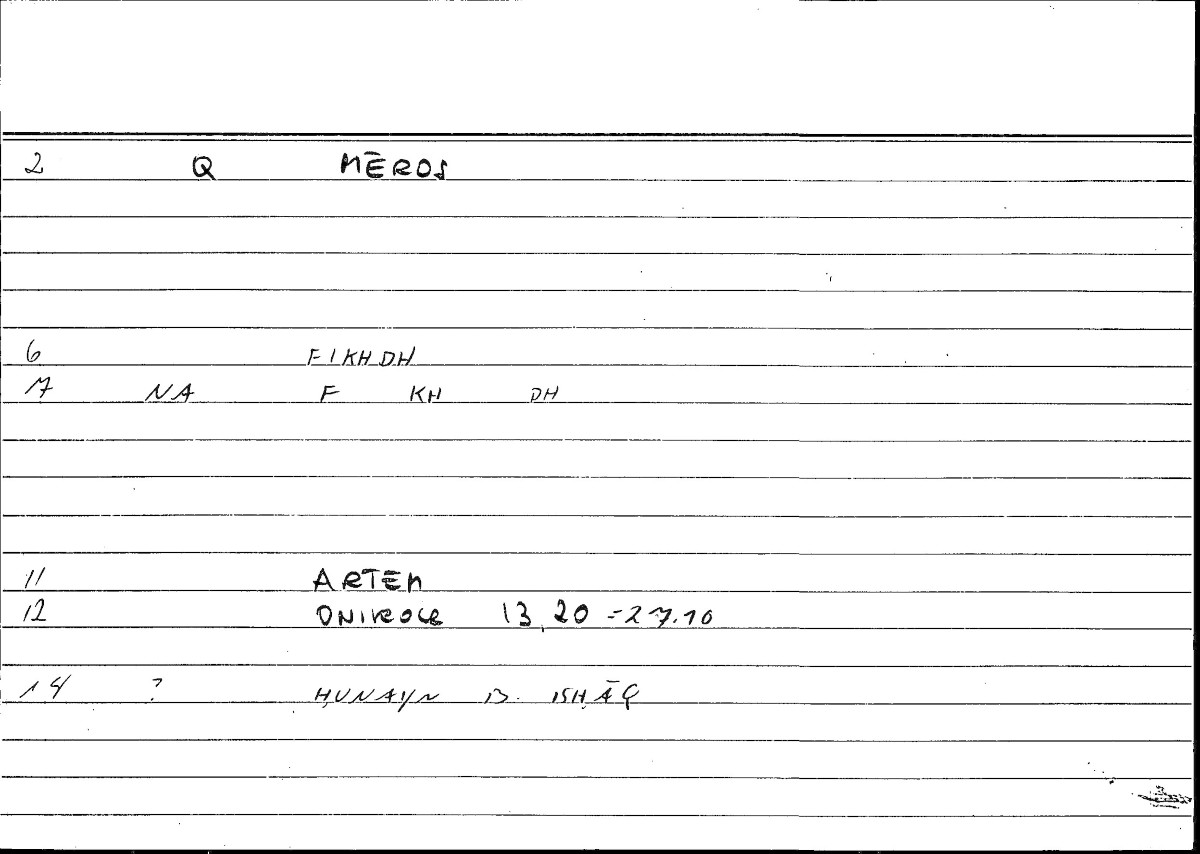 2 Q MĒROS
6 FIKHDH
7 NA F KH DH
11 ARTEM
12 ONIROCR 13,20 = 27.10
14 ? ḤUNAYN B. ISḤĀQ